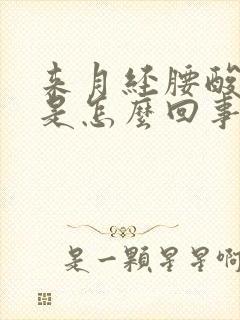 来月经腰酸
是怎麼回事
是一顆星星啊